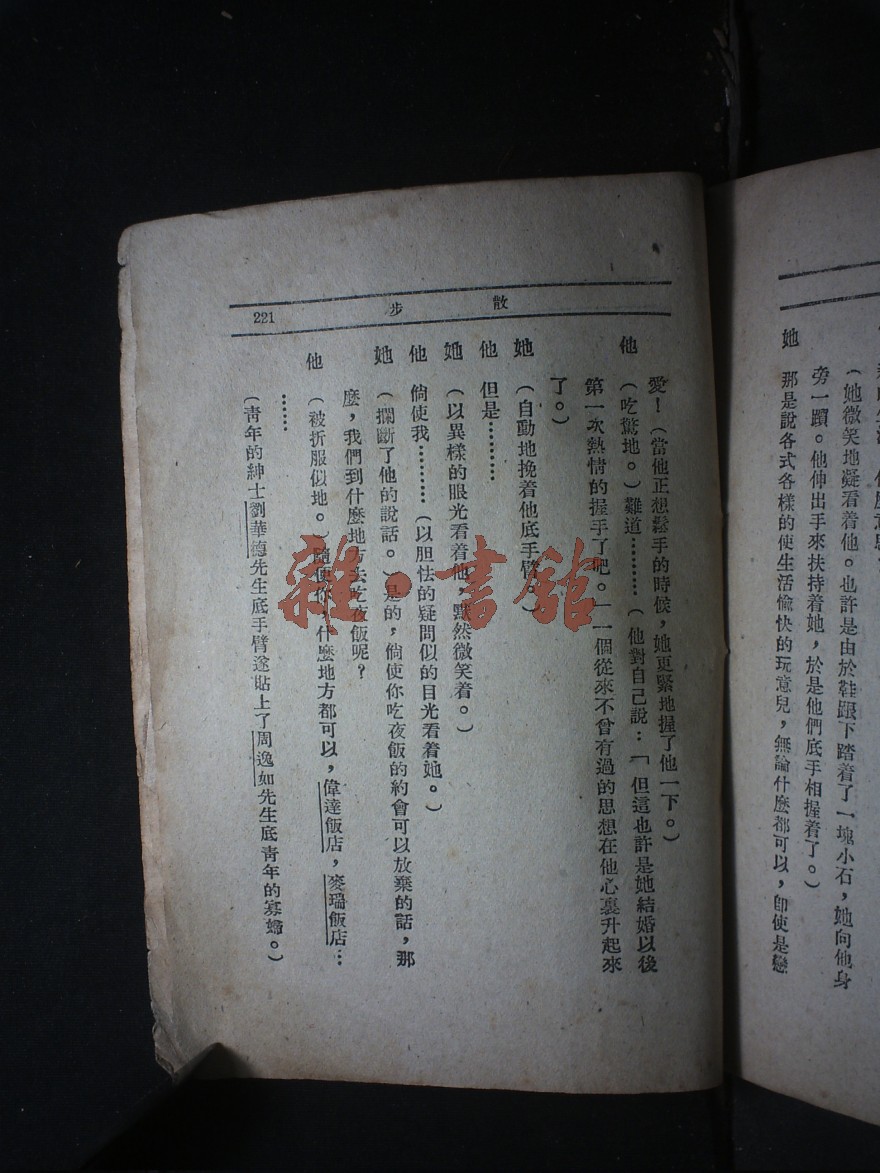 她
(她微笑地凝看着他。也許是由於鞋跟下踏着了一塊小石,她向他身
旁一躓。他伸出手來扶持着她,於是他們底手相握着了。)
那是說各式各樣的使生活愉快的玩意兒,無論什麽都可以,卽使是戀
散 步
221
愛!(當他正想鬆手的時候,她更緊地握了他一下。)
他 (吃驚地。)難道………(他對自己說:「但這也許是她結婚以後
第一次熱情的握手了吧。」一個從來不曾有過的思想在他心裏升起來
了。)
她 (自動地挽着他底手臂。)
他 但是………
她 (以異樣的眼光看着他,默然微笑着。)
他 倘使我………(以胆怯的疑問似的目光看着她。)
她 (攔斷了他的說話。)是的,倘使你吃夜飯的約會可以放棄的話,那
麽,我們到什麽地方去吃夜飯呢?
他 (被折服似地。)隨使你,什麽地方都可以,偉達飯店,麥瑞飯店…
……
(靑年的紳士劉華德先生底手臂遂貼上了周逸如先生底靑年的寡婦。)
雜·書館